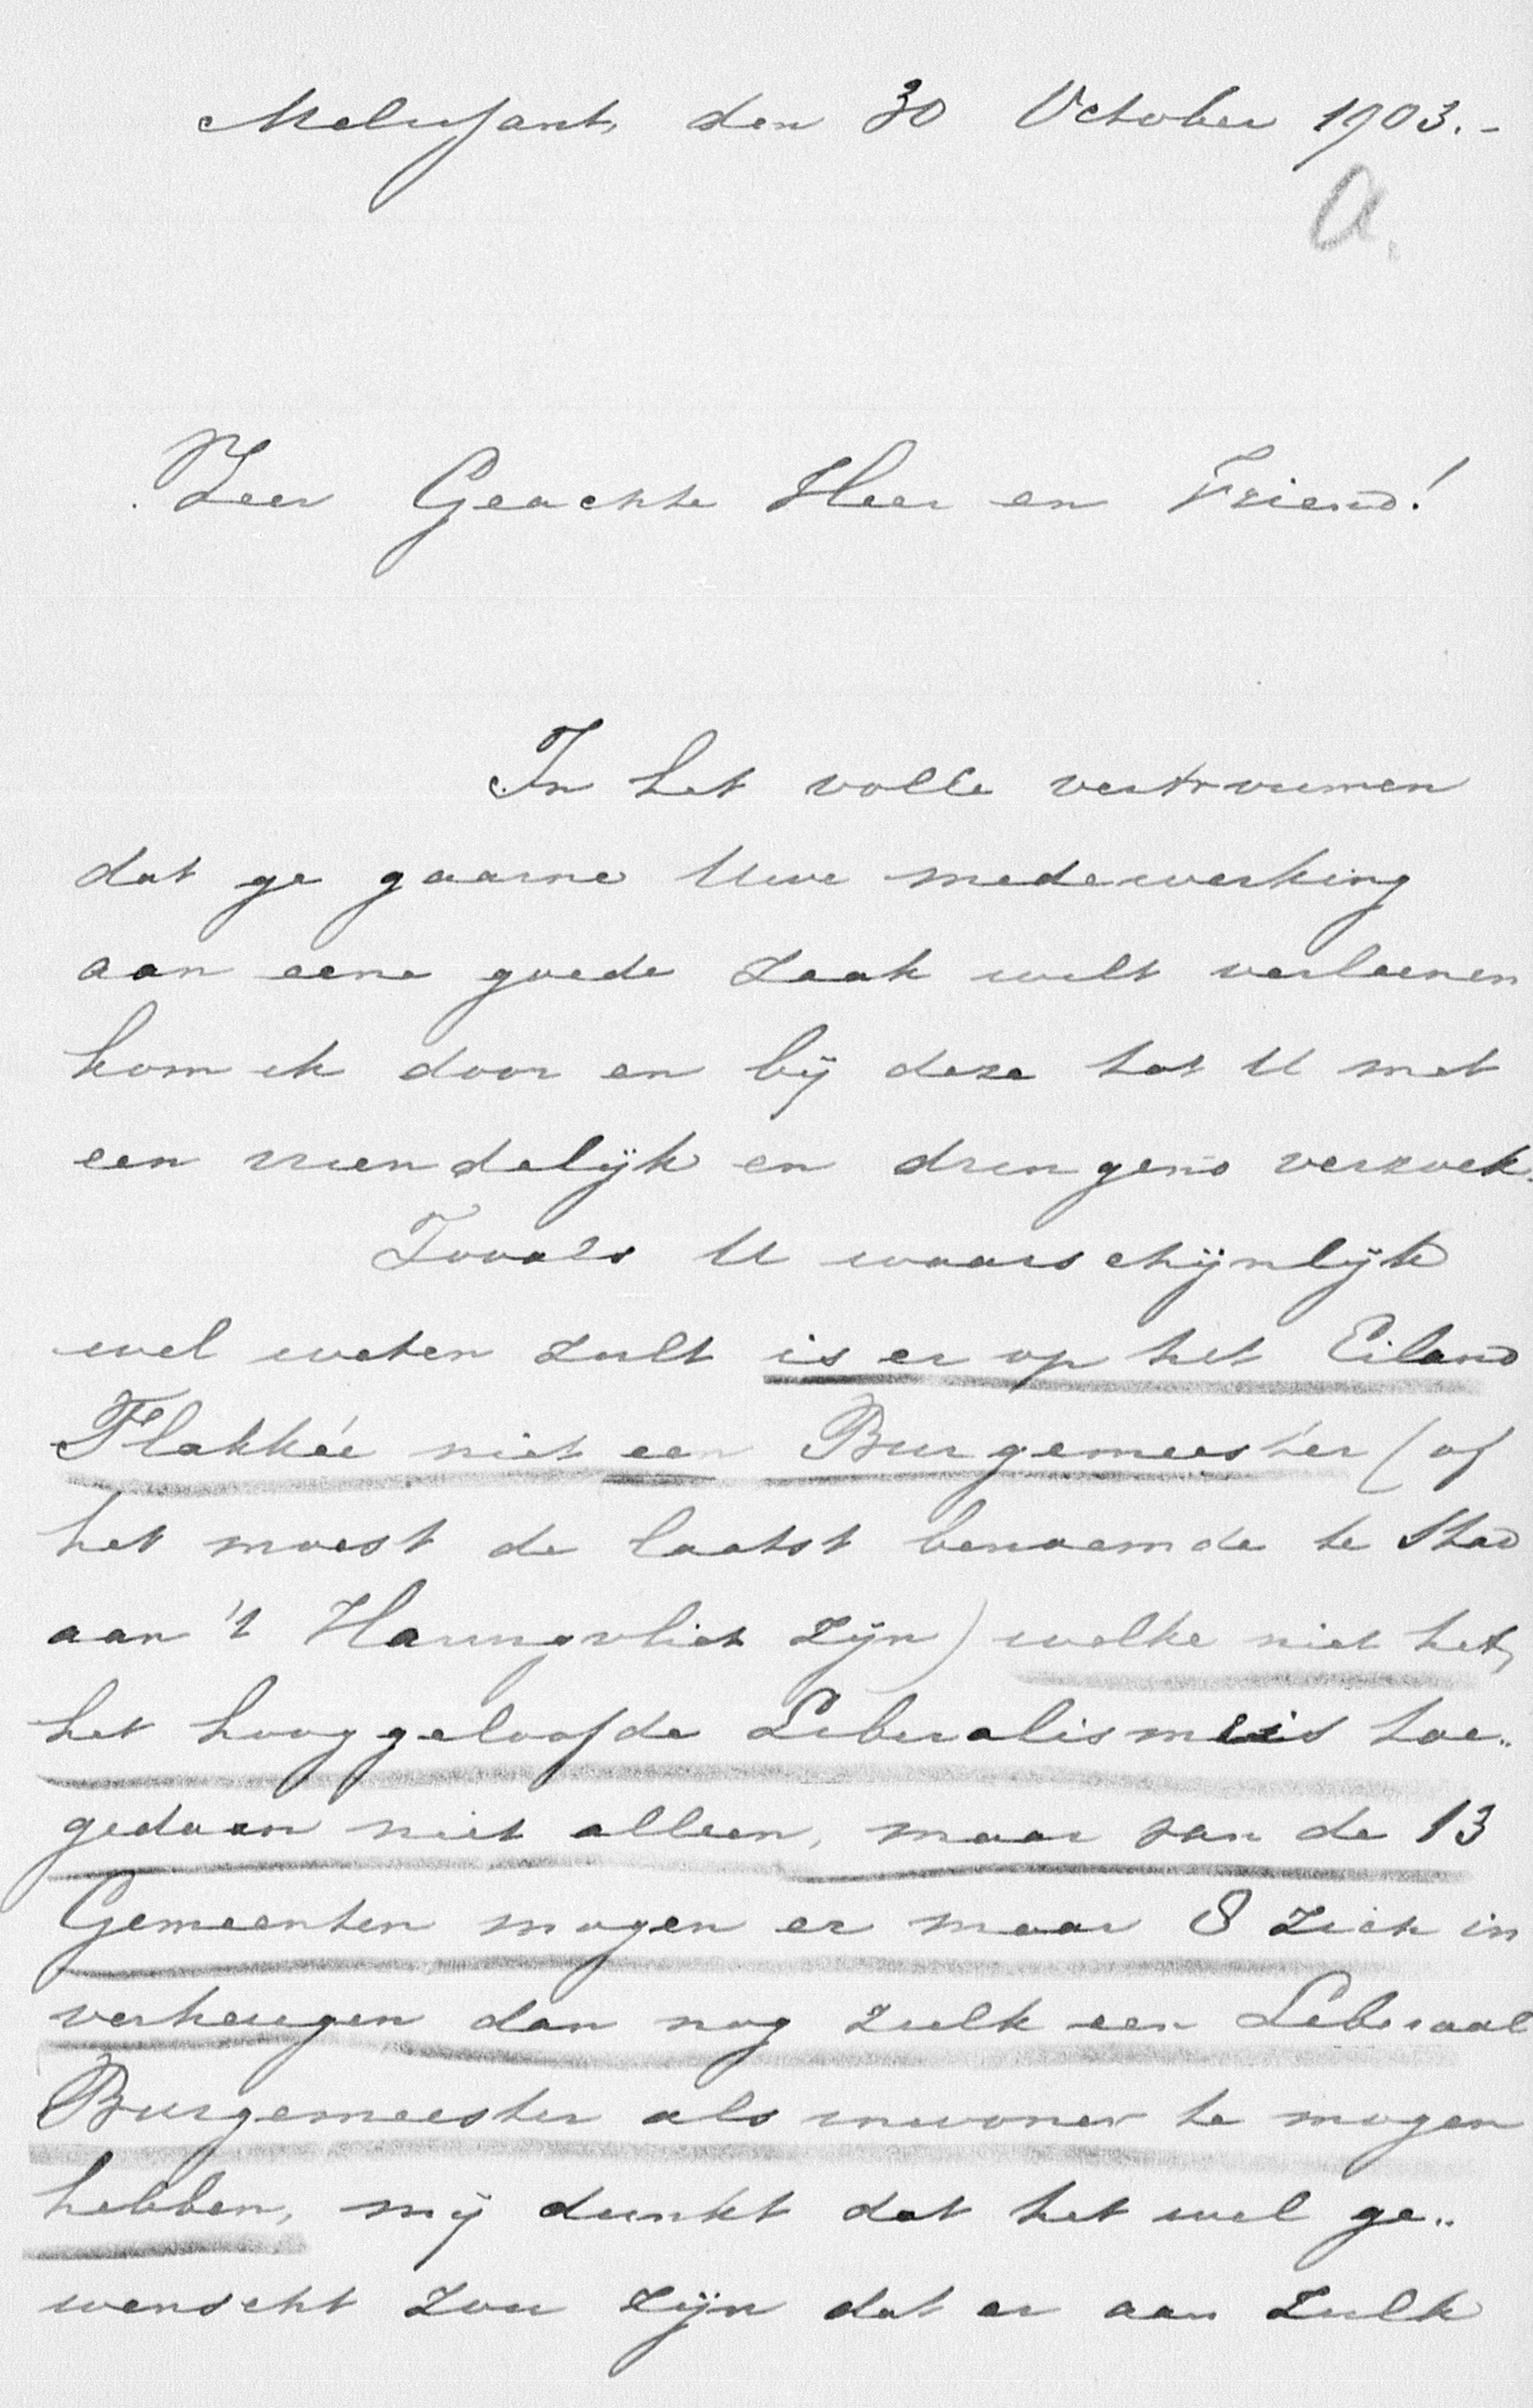 Melissant, den 30 October 1903.-
a.
Zeer Geachte Heer en Vriend!
In het volle vertrouwen
dat ge gaarne Uwe medewerking
aan eene goede zaak wilt verleenen
kom ik door en bij deze tot U met
een vriendelijk en dringend verzoek.
Zooals U waarschijnlijk
wel weten zult is er op het Eiland
Flakkée niet een Burgemeester (of
het moest de laatst benoemde te Stad
aan 't Haringvliet zijn) welke niet het,
het hooggeloofde Liberalisme is toe..
gedaan niet alleen, maar van de 13
Gemeenten mogen er maar 8 zich in
verheugen dan nog zulk een Liberaal
Burgemeester als inwoner te mogen
hebben, mij dunkt dat het wel ge..
wenscht zou zijn dat er aan zulk